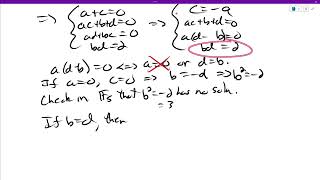 => { a+c=0 => { c=-a
ac+b+d=0 ac+b+d=0
ad+bc=0 a(d-b)=0
bd=2 bd=2
a(d-b)=0 <=> a=0 or d=b.
If a=0, c=0 => b=-d => b²=-2
Check in F₅ that b²=-2 has no soln.
=3
If b=d, then